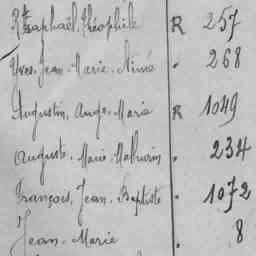 Raphaël, Théophile R 257
Yves, Jean-Marie, Aimé " 268
Augustin, Ange, Marie R 1049
Auguste, Marie, Mathurin " 234
François, Jean, Baptiste " 1072
Jean-Marie " 8